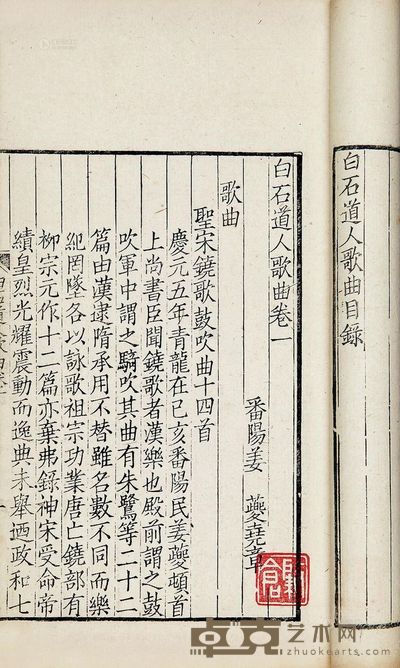 白石道人歌曲目錄
白石道人歌曲卷一
番陽姜夔堯章
歌曲
聖宋鐃歌鼓吹曲十四首
慶元五年青龍在己亥番陽民姜夔頓首
上尚書臣聞鐃歌者漢樂也殿前謂之鼓
吹軍中謂之騎吹其曲有朱鷺等二十二
篇由漢逮隋承用不替雖名數不同而樂
紀罔墜各以詠歌祖宗功業唐亡鐃部有
柳宗元作十二篇亦棄弗錄神宋受命帝
績皇烈光耀震動而逸典未舉迺政和七
卓克艺术网
www.zhuokearts.com